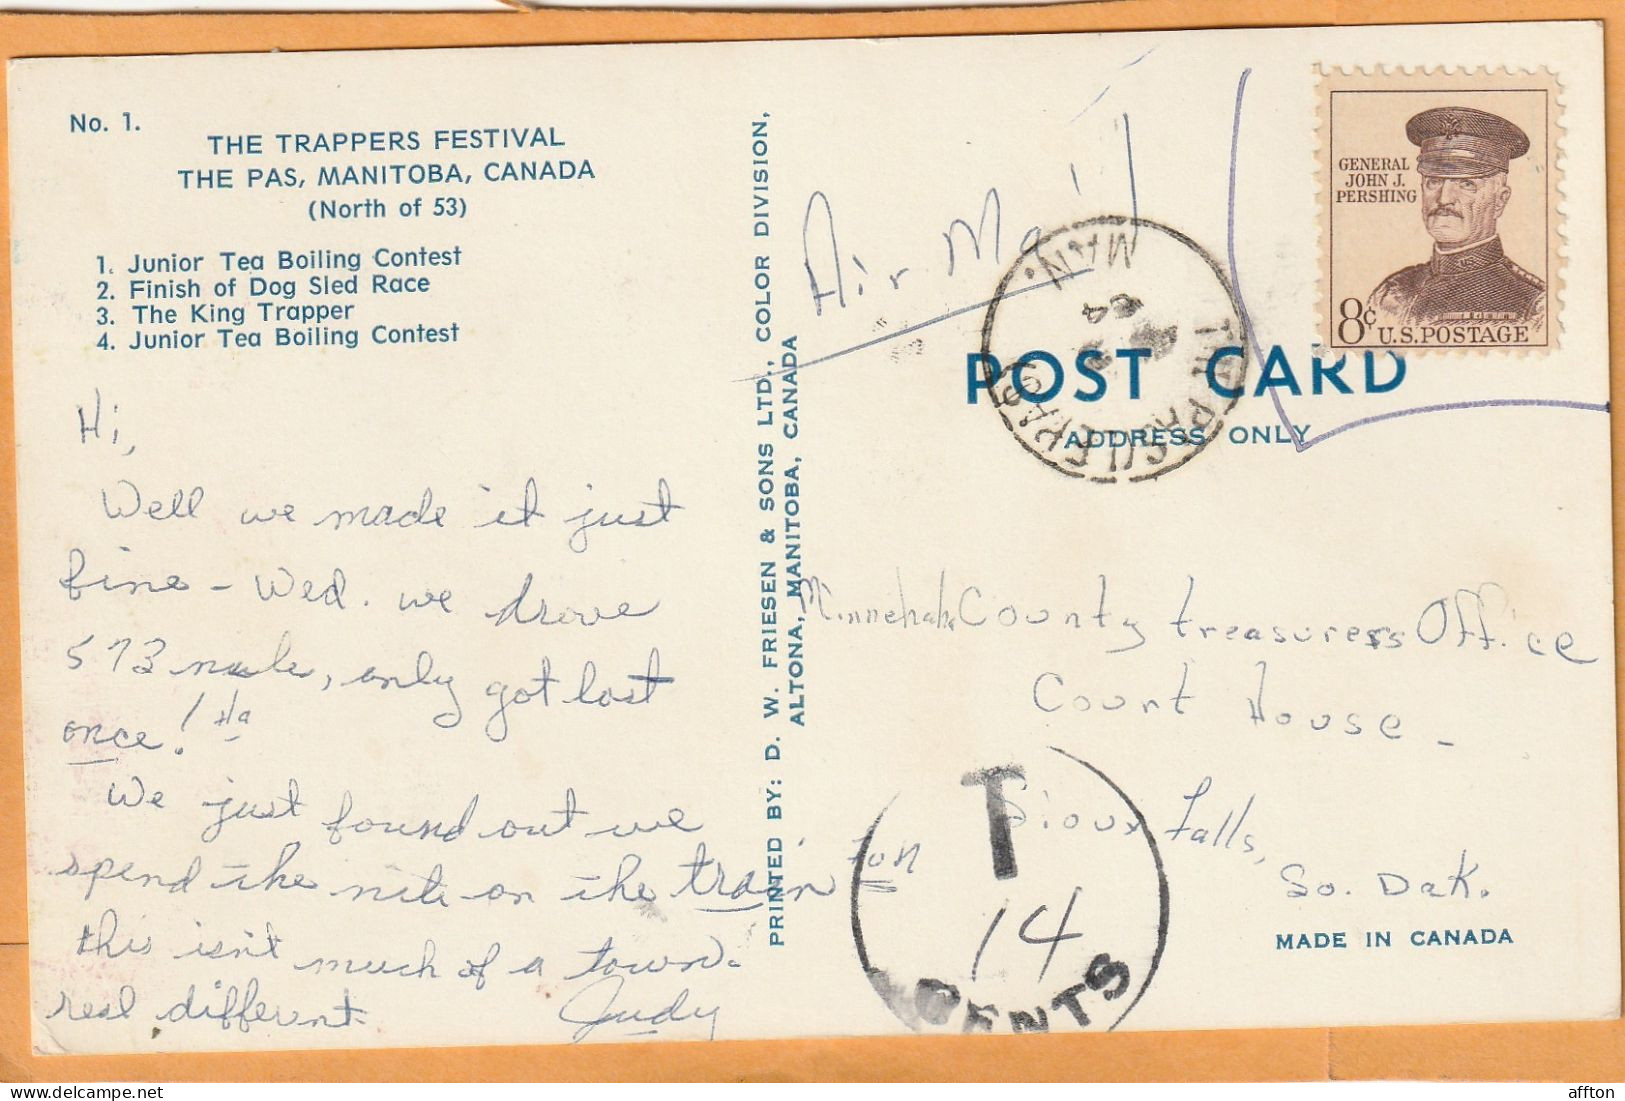 No. 1.
THE TRAPPERS FESTIVAL
THE PAS, MANITOBA, CANADA
(North of 53)
1. Junior Tea Boiling Contest
2. Finish of Dog Sled Race
3. The King Trapper
4. Junior Tea Boiling Contest
Hi,
Well we made it just
fine - Wed. we drove
573 miles, only got lost
once! Ha
We just found out we
spend the nite on the train fun
this isn't much of a town.
real different.
Judy
PRINTED BY: D. W. FRIESEN & SONS LTD., COLOR DIVISION,
ALTONA, MANITOBA, CANADA
Air Mail
GENERAL
JOHN J.
PERSHING
8¢ U.S. POSTAGE
THE PAS/LE PAS
MAN.
64
POST CARD
ADDRESS ONLY
Minnehaha County treasurers Office
Court House -
Sioux Falls,
So. Dak.
T
14
CENTS
MADE IN CANADA
affton